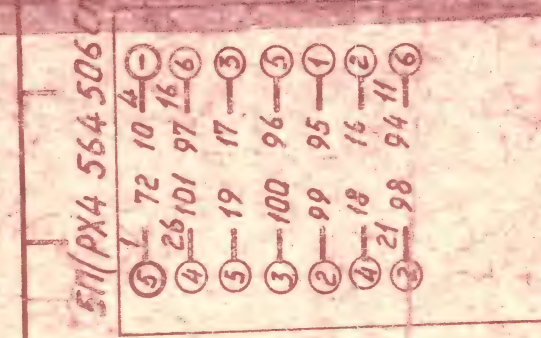 5П(РХ4 564 506
⑤ 1 72 10 4 ①
④ 26 101 97 16 ⑥
⑤ 19 17 ③
③ 100 96 ⑤
② 99 95 ①
④ 18 16 ②
② 21 98 94 11 ⑥